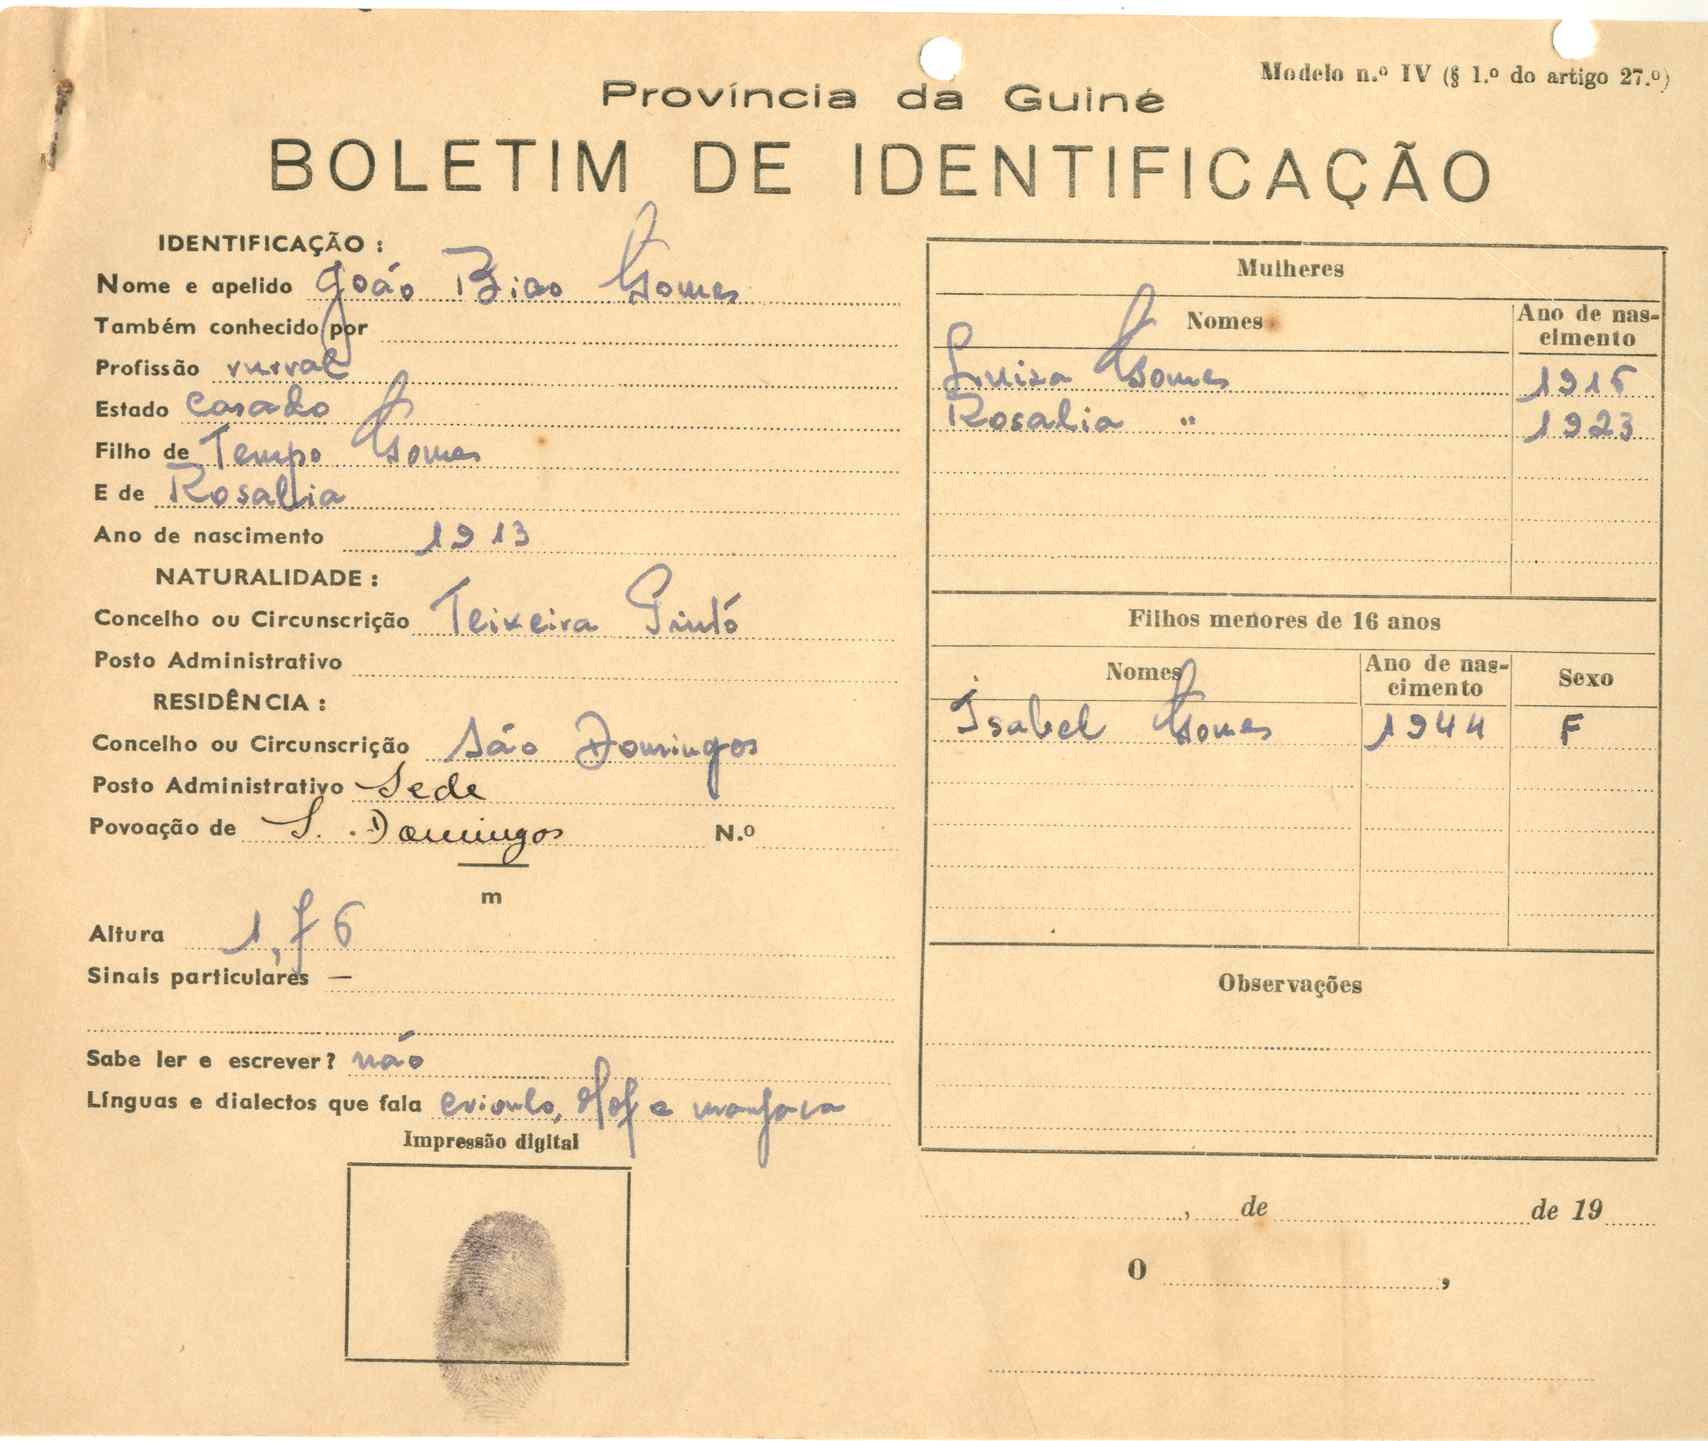 Modelo n.º IV (§ 1.º do artigo 27.º)
Província da Guiné
BOLETIM DE IDENTIFICAÇÃO
IDENTIFICAÇÃO :
Nome e apelido João Biao Gomes
Também conhecido por
Profissão rural
Estado Casado
Filho de Tempo Gomes
E de Rosalia
Ano de nascimento 1913
NATURALIDADE :
Concelho ou Circunscrição Teixeira Pinto
Posto Administrativo
RESIDÊNCIA :
Concelho ou Circunscrição São Domingos
Posto Administrativo Sede
Povoação de S. Domingos N.º
m
Altura 1,76
Sinais particulares —
Sabe ler e escrever? não
Línguas e dialectos que fala crioulo, e manjaca
Impressão digital
Mulheres
Nomes Ano de nas-
cimento
Luiza Gomes 1916
Rosalia " 1923
Filhos menores de 16 anos
Nomes Ano de nas-
cimento Sexo
Isabel Gomes 1944 F
Observações
, de de 19
O ,